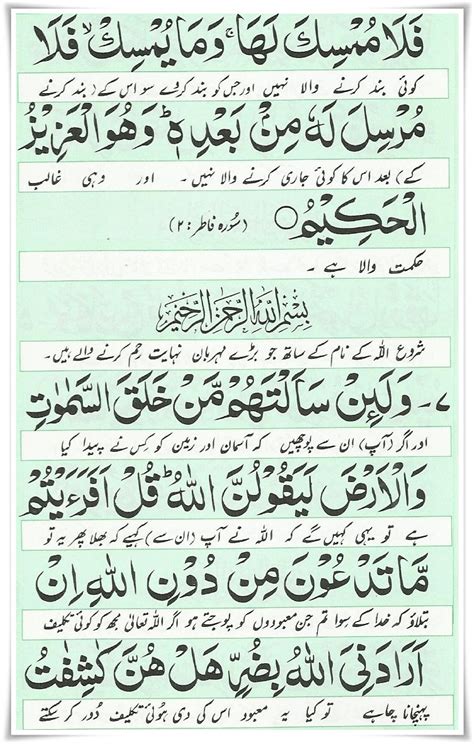 فَلَا مُمْسِكَ لَهَا ۚ وَمَا يُمْسِكْ فَلَا
کوئی بند کرنے والا نہیں اور جس کو بند کردے سو اس کے (بند کرنے
مُرْسِلَ لَهٗ مِنْ بَعْدِهٖ ؕ وَهُوَ الْعَزِيْزُ
کے) بعد اس کا کوئی جاری کرنے والا نہیں۔ اور وہی غالب
الْحَكِيْمُ ○ (سُورہ فاطر: ۲)
حکمت والا ہے ۔
بِسْمِ اللهِ الرَّحْمٰنِ الرَّحِيْمِ
شروع اللہ کے نام کے ساتھ جو بڑے مہربان نہایت رحم کرنے والے ہیں۔
۷۔ وَلَئِنْ سَاَلْتَهُمْ مَّنْ خَلَقَ السَّمٰوٰتِ
اور اگر (آپ) ان سے پوچھیں کہ آسمان اور زمین کو کس نے پیدا کیا
وَالْاَرْضَ لَيَقُوْلُنَّ اللهُ ؕ قُلْ اَفَرَءَيْتُمْ
ہے تو یہی کہیں گے کہ اللہ نے آپ (ان سے) کہیے کہ بھلا پھر یہ تو
مَّا تَدْعُوْنَ مِنْ دُوْنِ اللهِ اِنْ
بتلاؤ کہ خدا کے سوا تم جن معبودوں کو پوجتے ہو اگر اللہ تعالٰی مجھ کو کوئی تکلیف
اَرَادَنِیَ اللهُ بِضُرٍّ هَلْ هُنَّ كٰشِفٰتُ
پہنچانا چاہے تو کیا یہ معبود اس کی دی ہُوئی تکلیف دُور کر سکتے